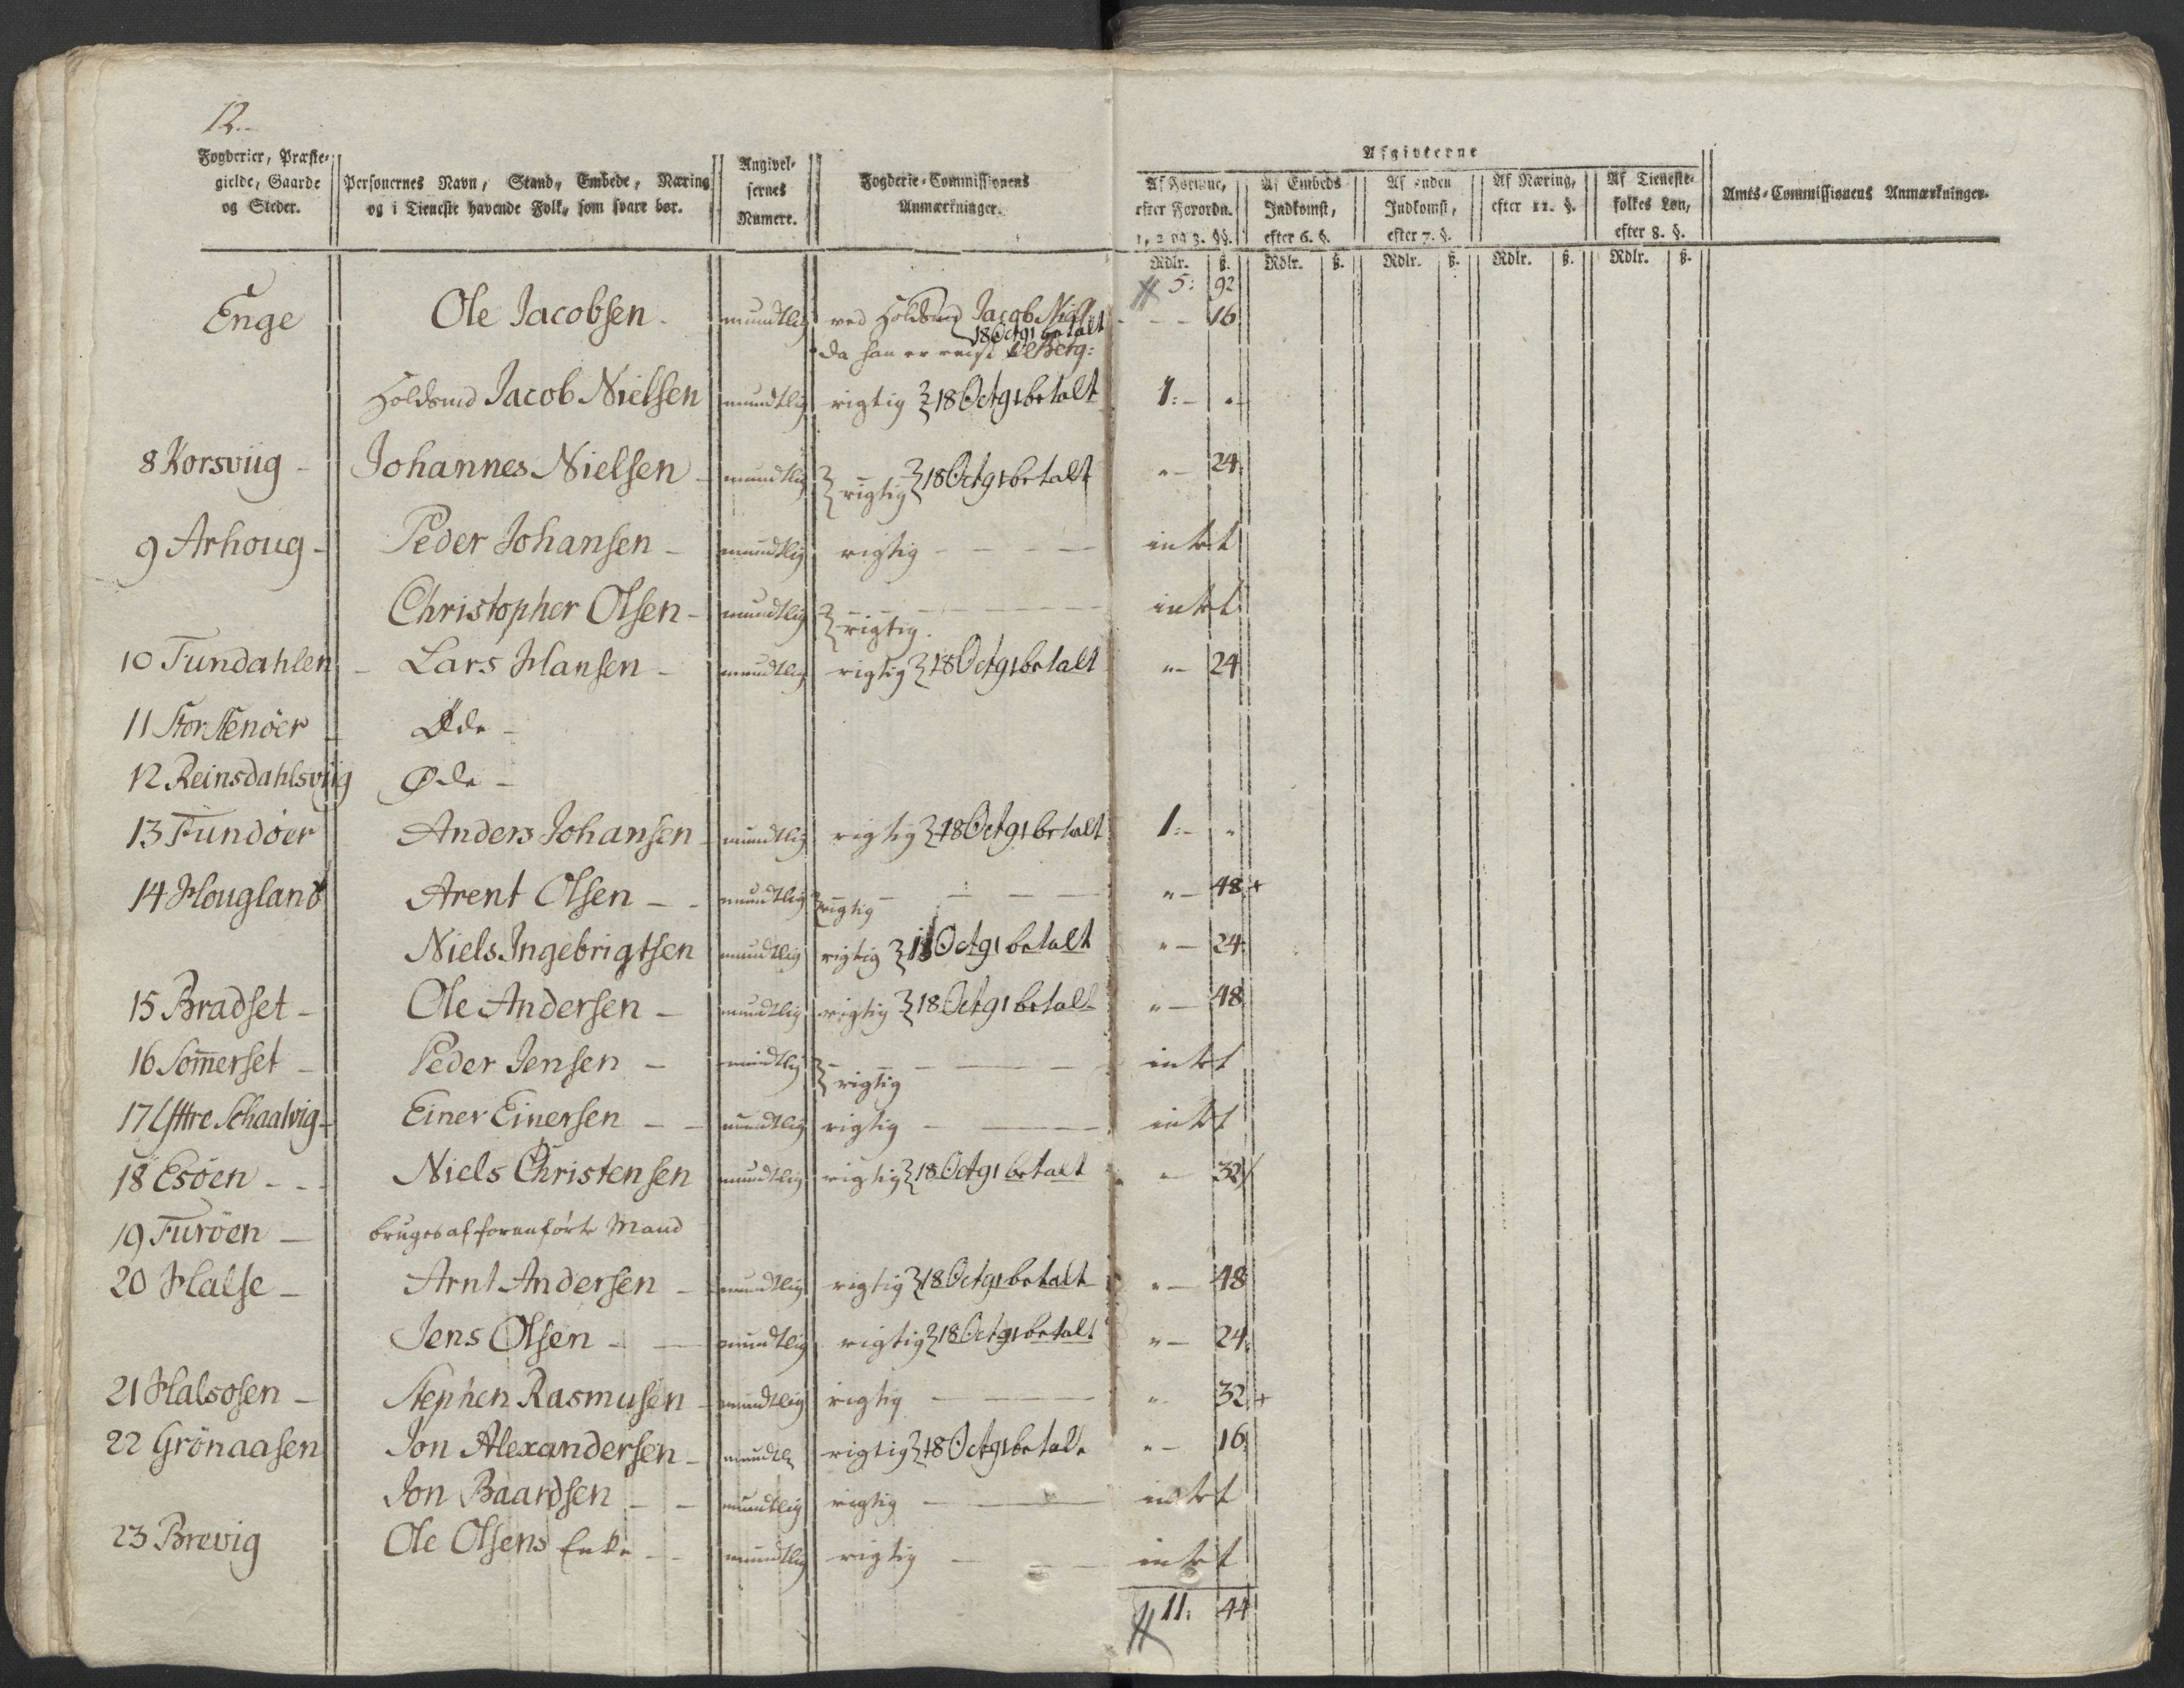 12.
Fogderier, Præste-
gielde, Gaarde
og Steder.
Personernes Navn, Stand, Embede, Næring
og i Tieneste havende Folk, som svare bør.
Angivel-
sernes
Numere.
Fogderie-Commissionens
Anmærkninger.
Afgivterne
Af Formue,
efter Forordn.
1, 2 og 3. §§.
Af Embeds
Indkomst,
efter 6. §.
Af anden
Indkomst,
efter 7. §.
Af Næring,
efter 11. §.
Af Tieneste-
folkes Løn,
efter 8. §.
Amts-Commissionens Anmærkninger.
Rdlr. ß. Rdlr. ß. Rdlr. ß. Rdlr. ß. Rdlr. ß.
5: 92
Enge Ole Jacobsen - mundtlig ved Holdsmd Jacob 18 Oct 91 betalt - - 16
da han er reist til Berg:
Holdsmd Jacob Nielsen mundtlig rigtig 18 Oct 91 betalt 1:- "
8 Korsviig - Johannes Nielsen - mundtlig rigtig 18 Oct 91 betalt " - 24
9 Arhoug - Peder Johansen - mundtlig rigtig - - - intet
Christopher Olsen - mundtlig rigtig - - - intet
10 Tundahlen - Lars Hansen - mundtlig rigtig 18 Oct 91 betalt " - 24
11 StorStenöer - Øde -
12 Reinsdahlsviig Øde -
13 Fundöer Anders Johansen - mundtlig rigtig 18 Oct 91 betalt 1:- "
14 Hougland Arent Olsen - - mundtlig rigtig - - - " - 48 +
Niels Ingebrigtsen mundtlig rigtig 18 Oct 91 betalt " - 24
15 Bradset - Ole Andersen - mundtlig rigtig 18 Oct 91 betalt " - 48
16 Som̄erset - Peder Jensen - mundtlig rigtig - - - intet
17 Yttre Schaalvig - Einer Einersen - - mundtlig rigtig - - intet
18 Esöen - - Niels Christensen mundtlig rigtig 18 Oct 91 betalt " - 32
19 Furöen - bruges af foranførte Mand
20 Halse - Arnt Andersen - mundtlig rigtig 18 Oct 91 betalt " - 48
Jens Olsen - - mundtlig rigtig 18 Oct 91 betalt " - 24
21 Halsosen - Stephen Rasmusen - mundtlig rigtig - - " - 32 +
22 Grönaasen Jon Alexandersen - mundtlig rigtig 18 Oct 91 betalt " - 16
Jon Baardsen - - mundtlig rigtig - - intet
23 Brevig Ole Olsens Enke - - mundtlig rigtig - - intet
11: 44